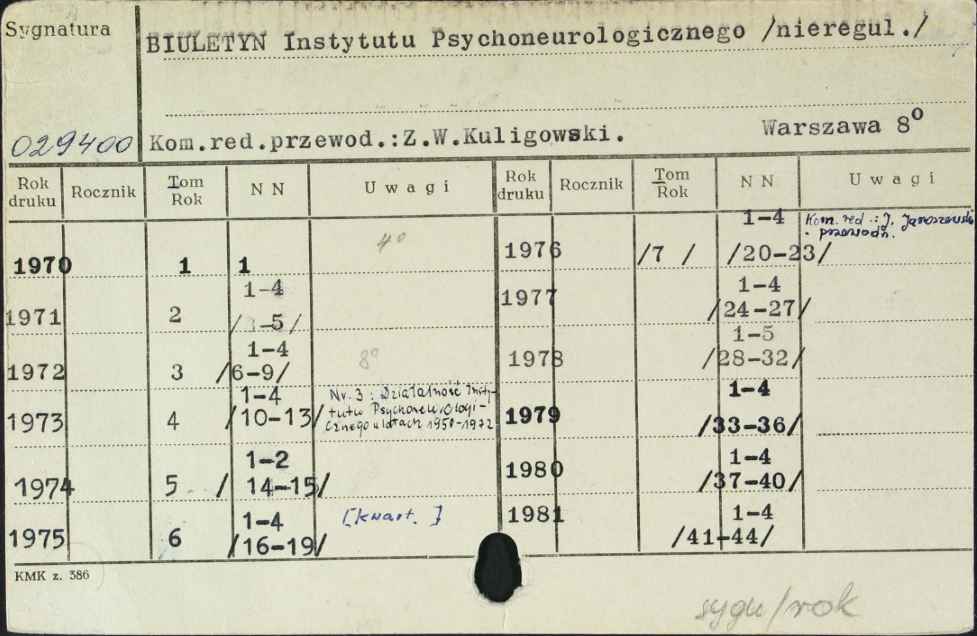 Sygnatura
BIULETYN Instytutu Psychoneurologicznego /nieregul./
029400
Kom.red.przewod.:Z.W.Kuligowski. Warszawa 8°
Rok druku Rocznik Tom Rok N N U w a g i Rok druku Rocznik Tom Rok N N U w a g i
1970 1 1 4°
1971 2 1-4 / -5/
1972 3 1-4 /6-9/ 8°
1973 4 1-4 /10-13/ Nr. 3 : Działalność Insty-
tutu Psychoneurologi-
cznego w latach 1950-1972
1974 5 1-2 / 14-15/
1975 6 1-4 /16-19/ [kwart. ]
1976 /7 / 1-4 /20-23/ Kom. red.: J. Jaroszewski
- przewodn.
1977 1-4 /24-27/
1978 1-5 /28-32/
1979 1-4 /33-36/
1980 1-4 /37-40/
1981 1-4 /41-44/
KMK z. 386
sygn/rok